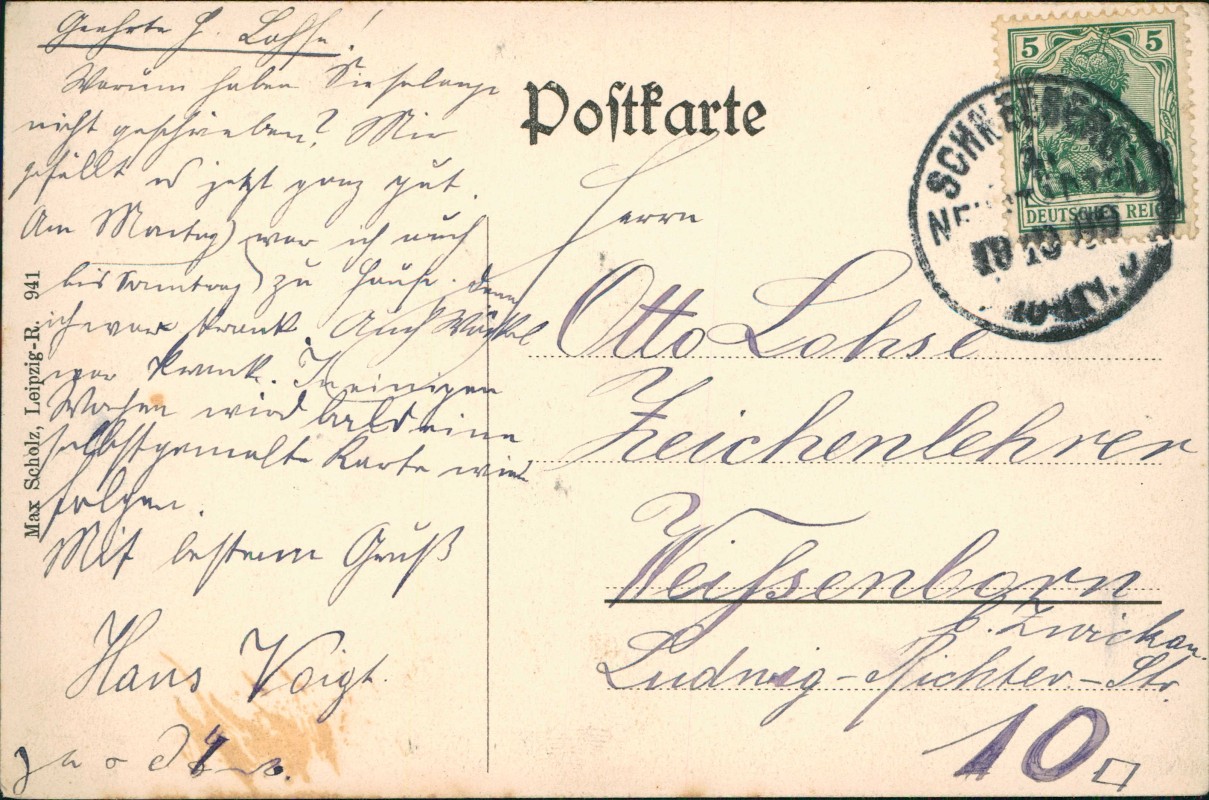 Geehrter H. Lohse!
Warum haben Sie so lange
nicht geschrieben? Mir
gefällt es jetzt ganz gut.
Am Montag war ich auch
bis Sonntag zu Hause. denn
ich war krank. Auch
war krank. In einigen
Wochen wird bald eine
selbstgemalte Karte wied.
folgen.
Mit bestem Gruß
Hans Voigt.
Max Scholz, Leipzig-R. 941
Postkarte
5 5
DEUTSCHES REICH
SCHNEEBERG
NEUSTÄDTEL
Herrn
Otto Lohse
Zeichenlehrer
Weißenborn
b. Zwickau.
Ludwig-Richter-Str.
10